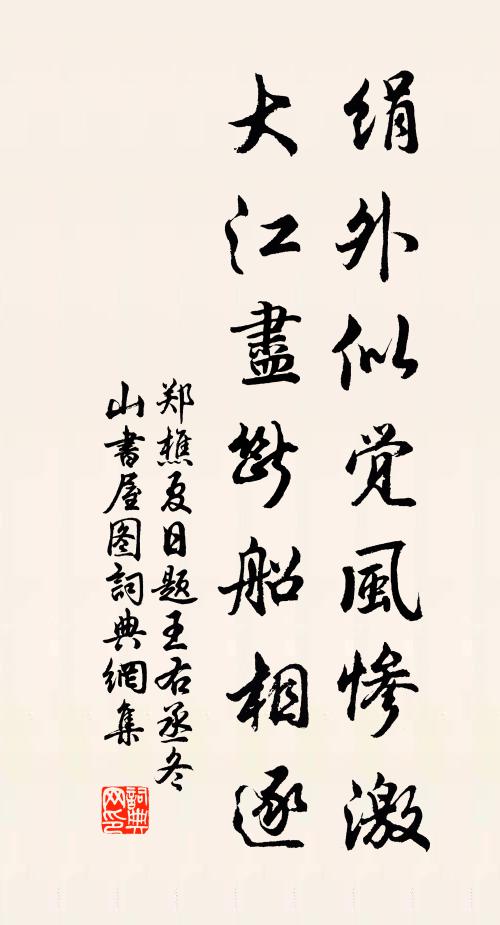 絹外似覺風慘激
大江盡斷船相逐
郑樵夏日题王右丞冬
山書屋图詞典網集
詞典网印